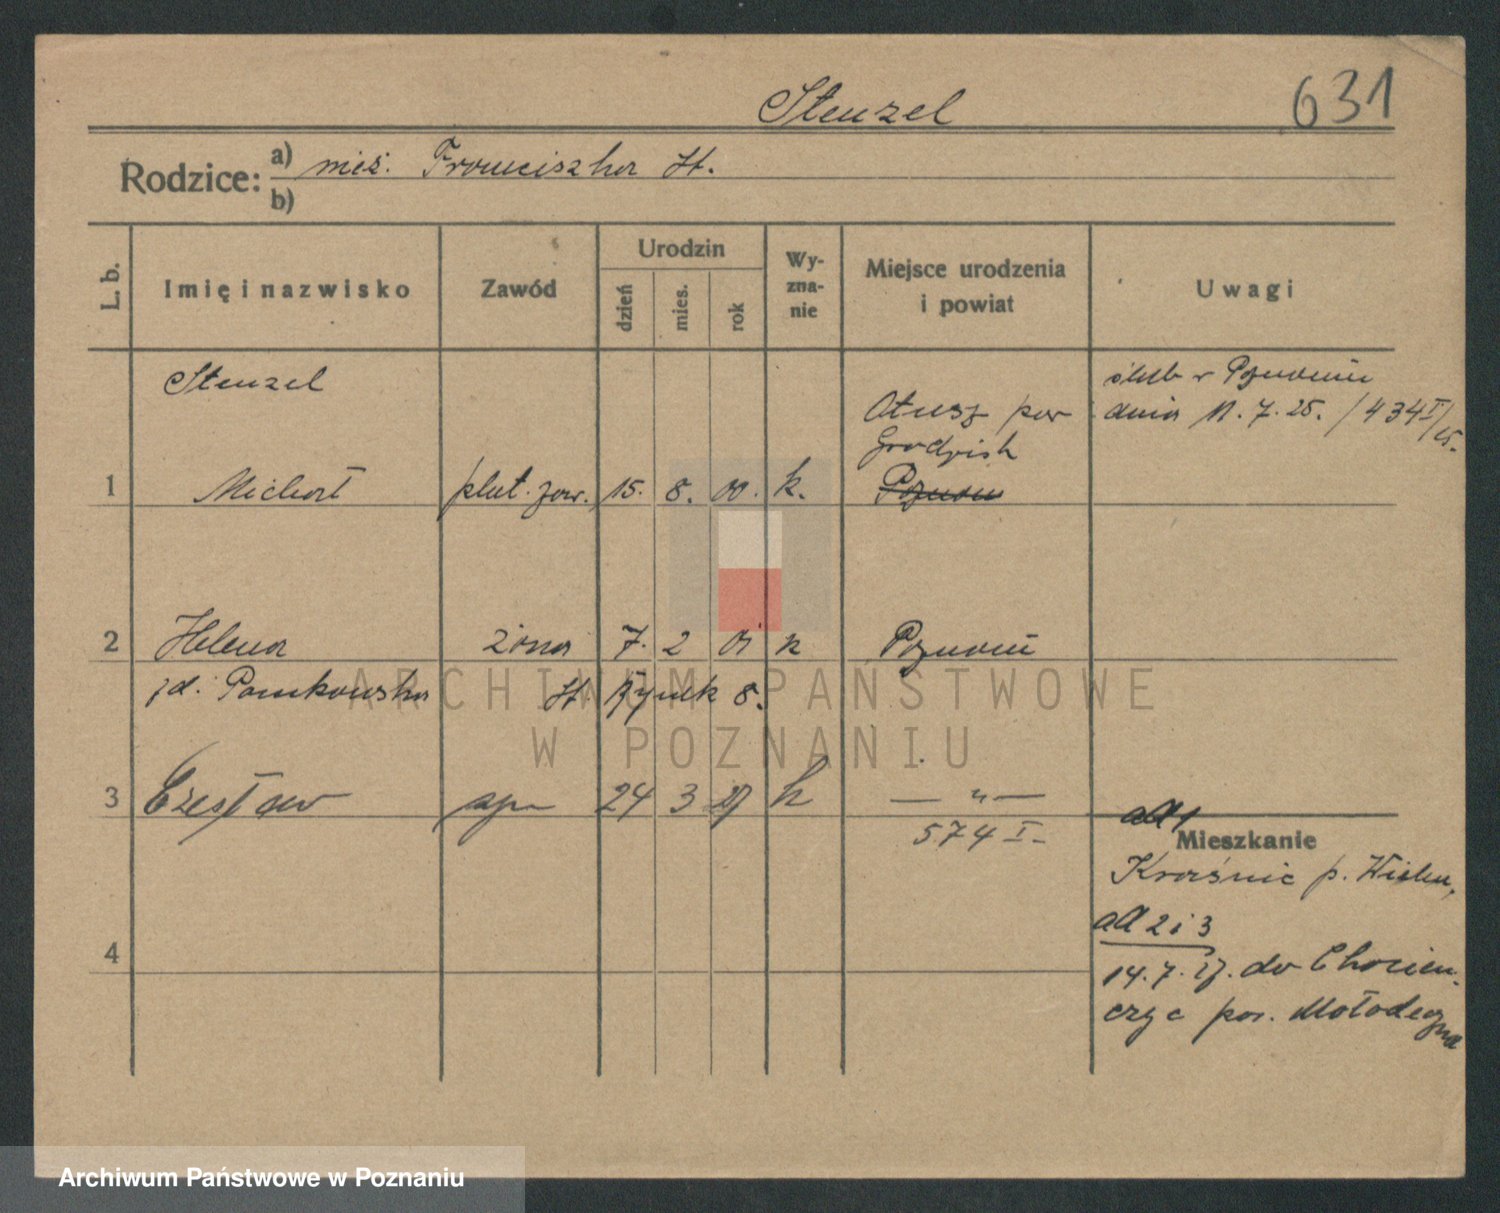 Stenzel
631
Rodzice: a) nieś. Franciszka St.
b)
L. b.
Imię i nazwisko
Zawód
Urodzin
dzień
mies.
rok
Wy-
zna-
nie
Miejsce urodzenia
i powiat
Uwagi
Stenzel
ślub w Poznaniu
Otusz pow
dnia 11. 7. 25. /434 I/25.
Grodzisk
1 Michał plut. zaw. 15. 8. 00. k. Poznań
2 Helena żona 7. 2 01 k Poznań
zd. Pankowska St. Rynek 8.
3 Czesław syn 24 3 27 k — " —
574 I.-
ad 1
Mieszkanie
Kraśnie p. Wilen,
ad 2 i 3
4
14. 7. 27. do Chocien-
czyc pow. Mołodeczna
ARCHIWUM PAŃSTWOWE
W POZNANIU
Archiwum Państwowe w Poznaniu